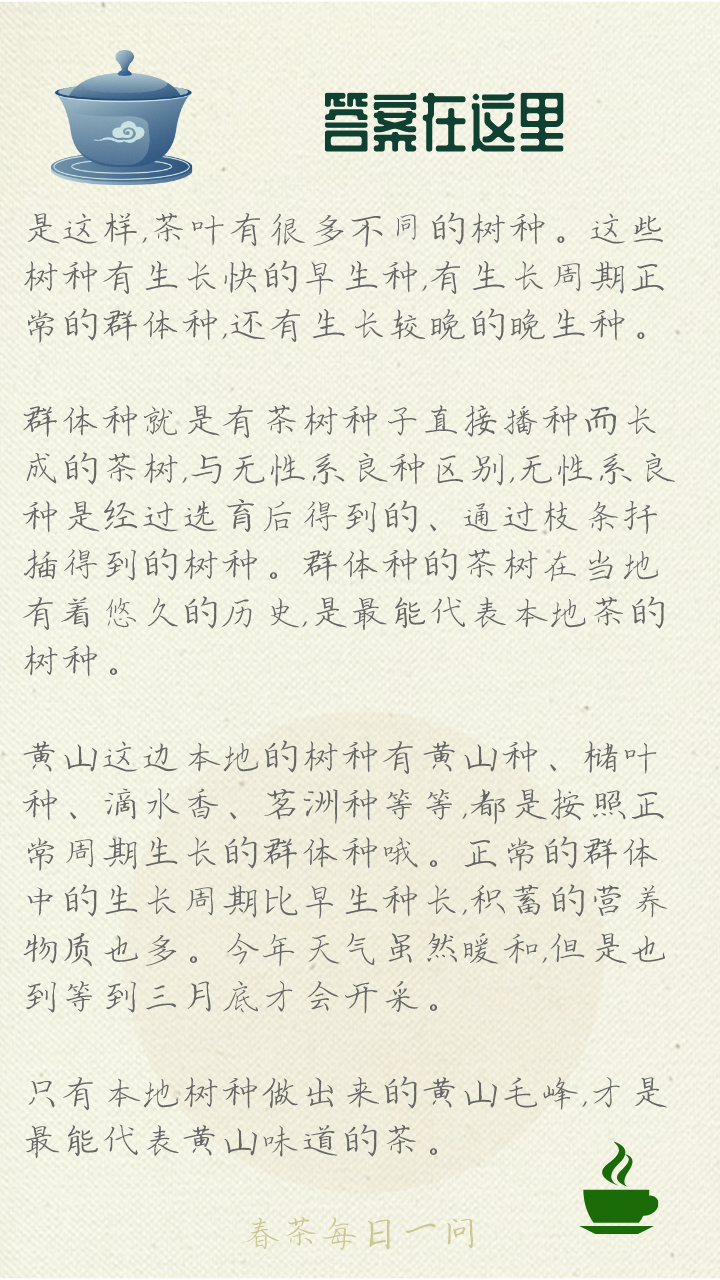 答案在这里
是这样,茶叶有很多不同的树种。这些
树种有生长快的早生种,有生长周期正
常的群体种,还有生长较晚的晚生种。
群体种就是有茶树种子直接播种而长
成的茶树,与无性系良种区别,无性系良
种是经过选育后得到的、通过枝条扦
插得到的树种。群体种的茶树在当地
有着悠久的历史,是最能代表本地茶的
树种。
黄山这边本地的树种有黄山种、槠叶
种、滴水香、茗洲种等等,都是按照正
常周期生长的群体种哦。正常的群体
中的生长周期比早生种长,积蓄的营养
物质也多。今年天气虽然暖和,但是也
到等到三月底才会开采。
只有本地树种做出来的黄山毛峰,才是
最能代表黄山味道的茶。
春茶每日一问